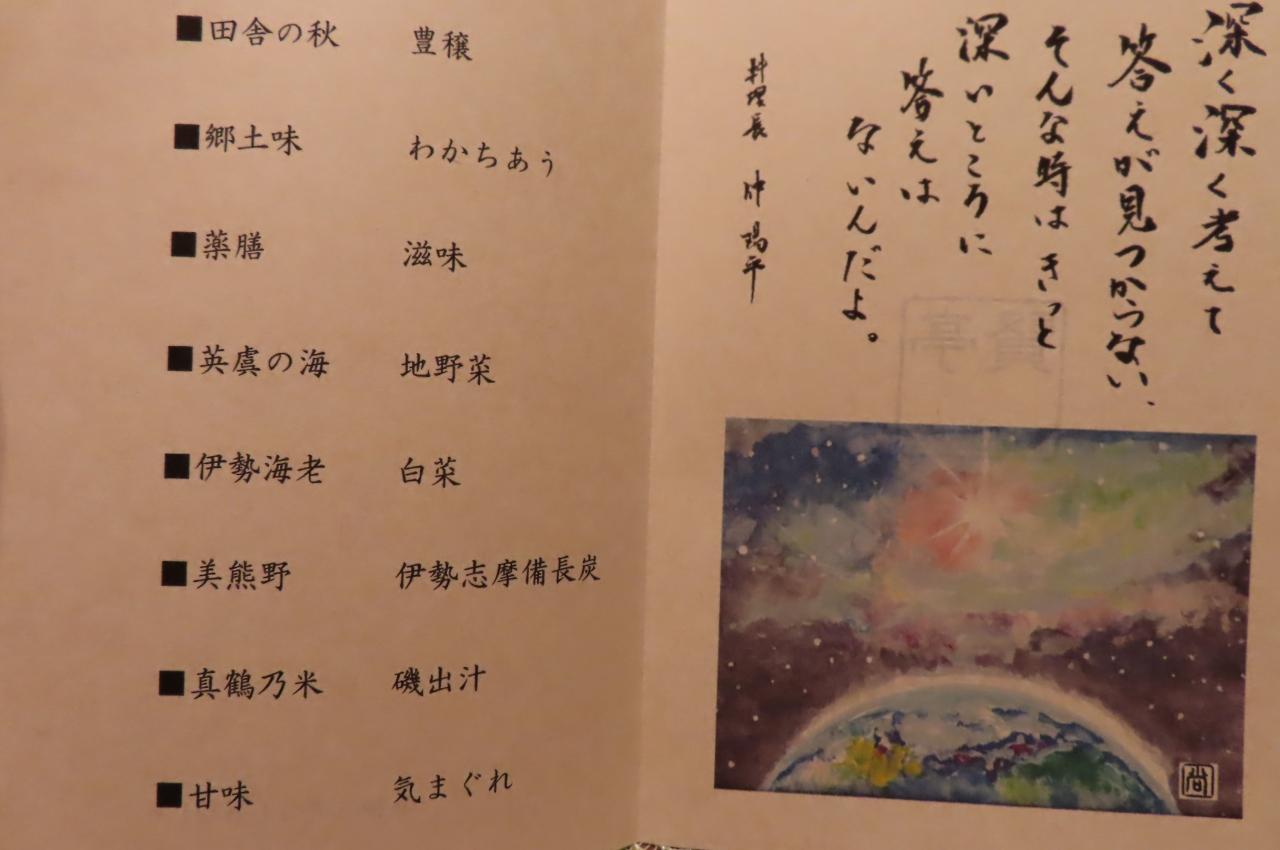 ■田舎の秋 豊穣
■郷土味 わかちあう
■薬膳 滋味
■英虞の海 地野菜
■伊勢海老 白菜
■美熊野 伊勢志摩備長炭
■真鶴乃米 磯出汁
■甘味 気まぐれ
深く深く考えて
答えが見つからない、
そんな時はきっと
深いところに
答えは
ないんだよ。
料理長 陽平
賢亭
尚